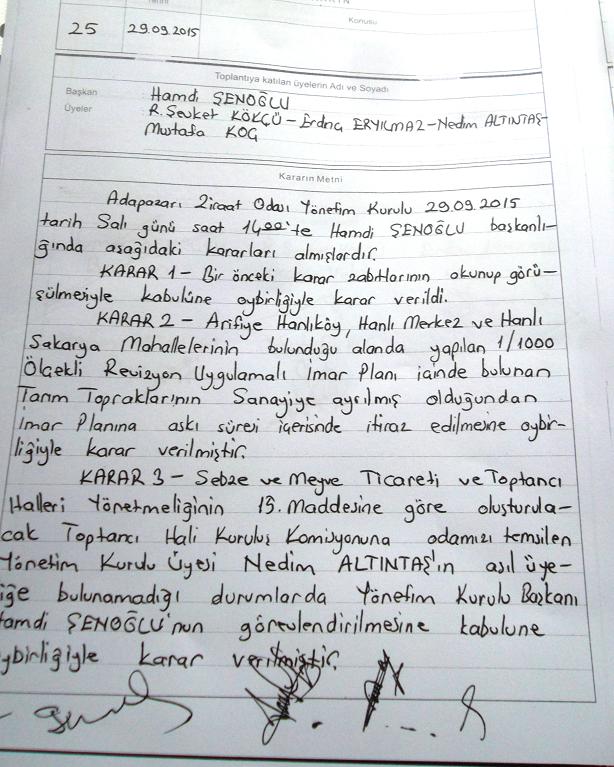 Konusu
25 29.09.2015
Toplantıya katılan üyelerin Adı ve Soyadı
Başkan Hamdi ŞENOĞLU
Üyeler R. Şevket KÖKÇÜ - Erdinç ERYILMAZ - Nedim ALTINTAŞ-
Mustafa KOÇ
Kararın Metni
Adapazarı Ziraat Odası Yönetim Kurulu 29.09.2015
tarih Salı günü saat 14.00'te Hamdi ŞENOĞLU başkanlı-
ğında aşağıdaki kararları almışlardır.
KARAR 1 - Bir önceki karar zabıtlarının okunup görü-
şülmesiyle kabulüne oybirliğiyle karar verildi.
KARAR 2 - Arifiye Hanlıköy, Hanlı Merkez ve Hanlı
Sakarya Mahallelerinin bulunduğu alanda yapılan 1/1000
Ölçekli Revizyon Uygulamalı İmar Planı içinde bulunan
Tarım Topraklarının Sanayiye ayrılmış olduğundan
İmar Planına askı süresi içerisinde itiraz edilmesine oybir-
liğiyle karar verilmiştir.
KARAR 3 - Sebze ve Meyve Ticareti ve Toptancı
Halleri Yönetmeliğinin 15. Maddesine göre oluşturula-
cak Toptancı Hali Kuruluş Komisyonuna odamızı temsilen
Yönetim Kurulu Üyesi Nedim ALTINTAŞ'ın asıl üye-
iğe bulunamadığı durumlarda Yönetim Kurulu Başkanı
Hamdi ŞENOĞLU'nun görevlendirilmesine kabulune
oybirliğiyle karar verilmiştir.